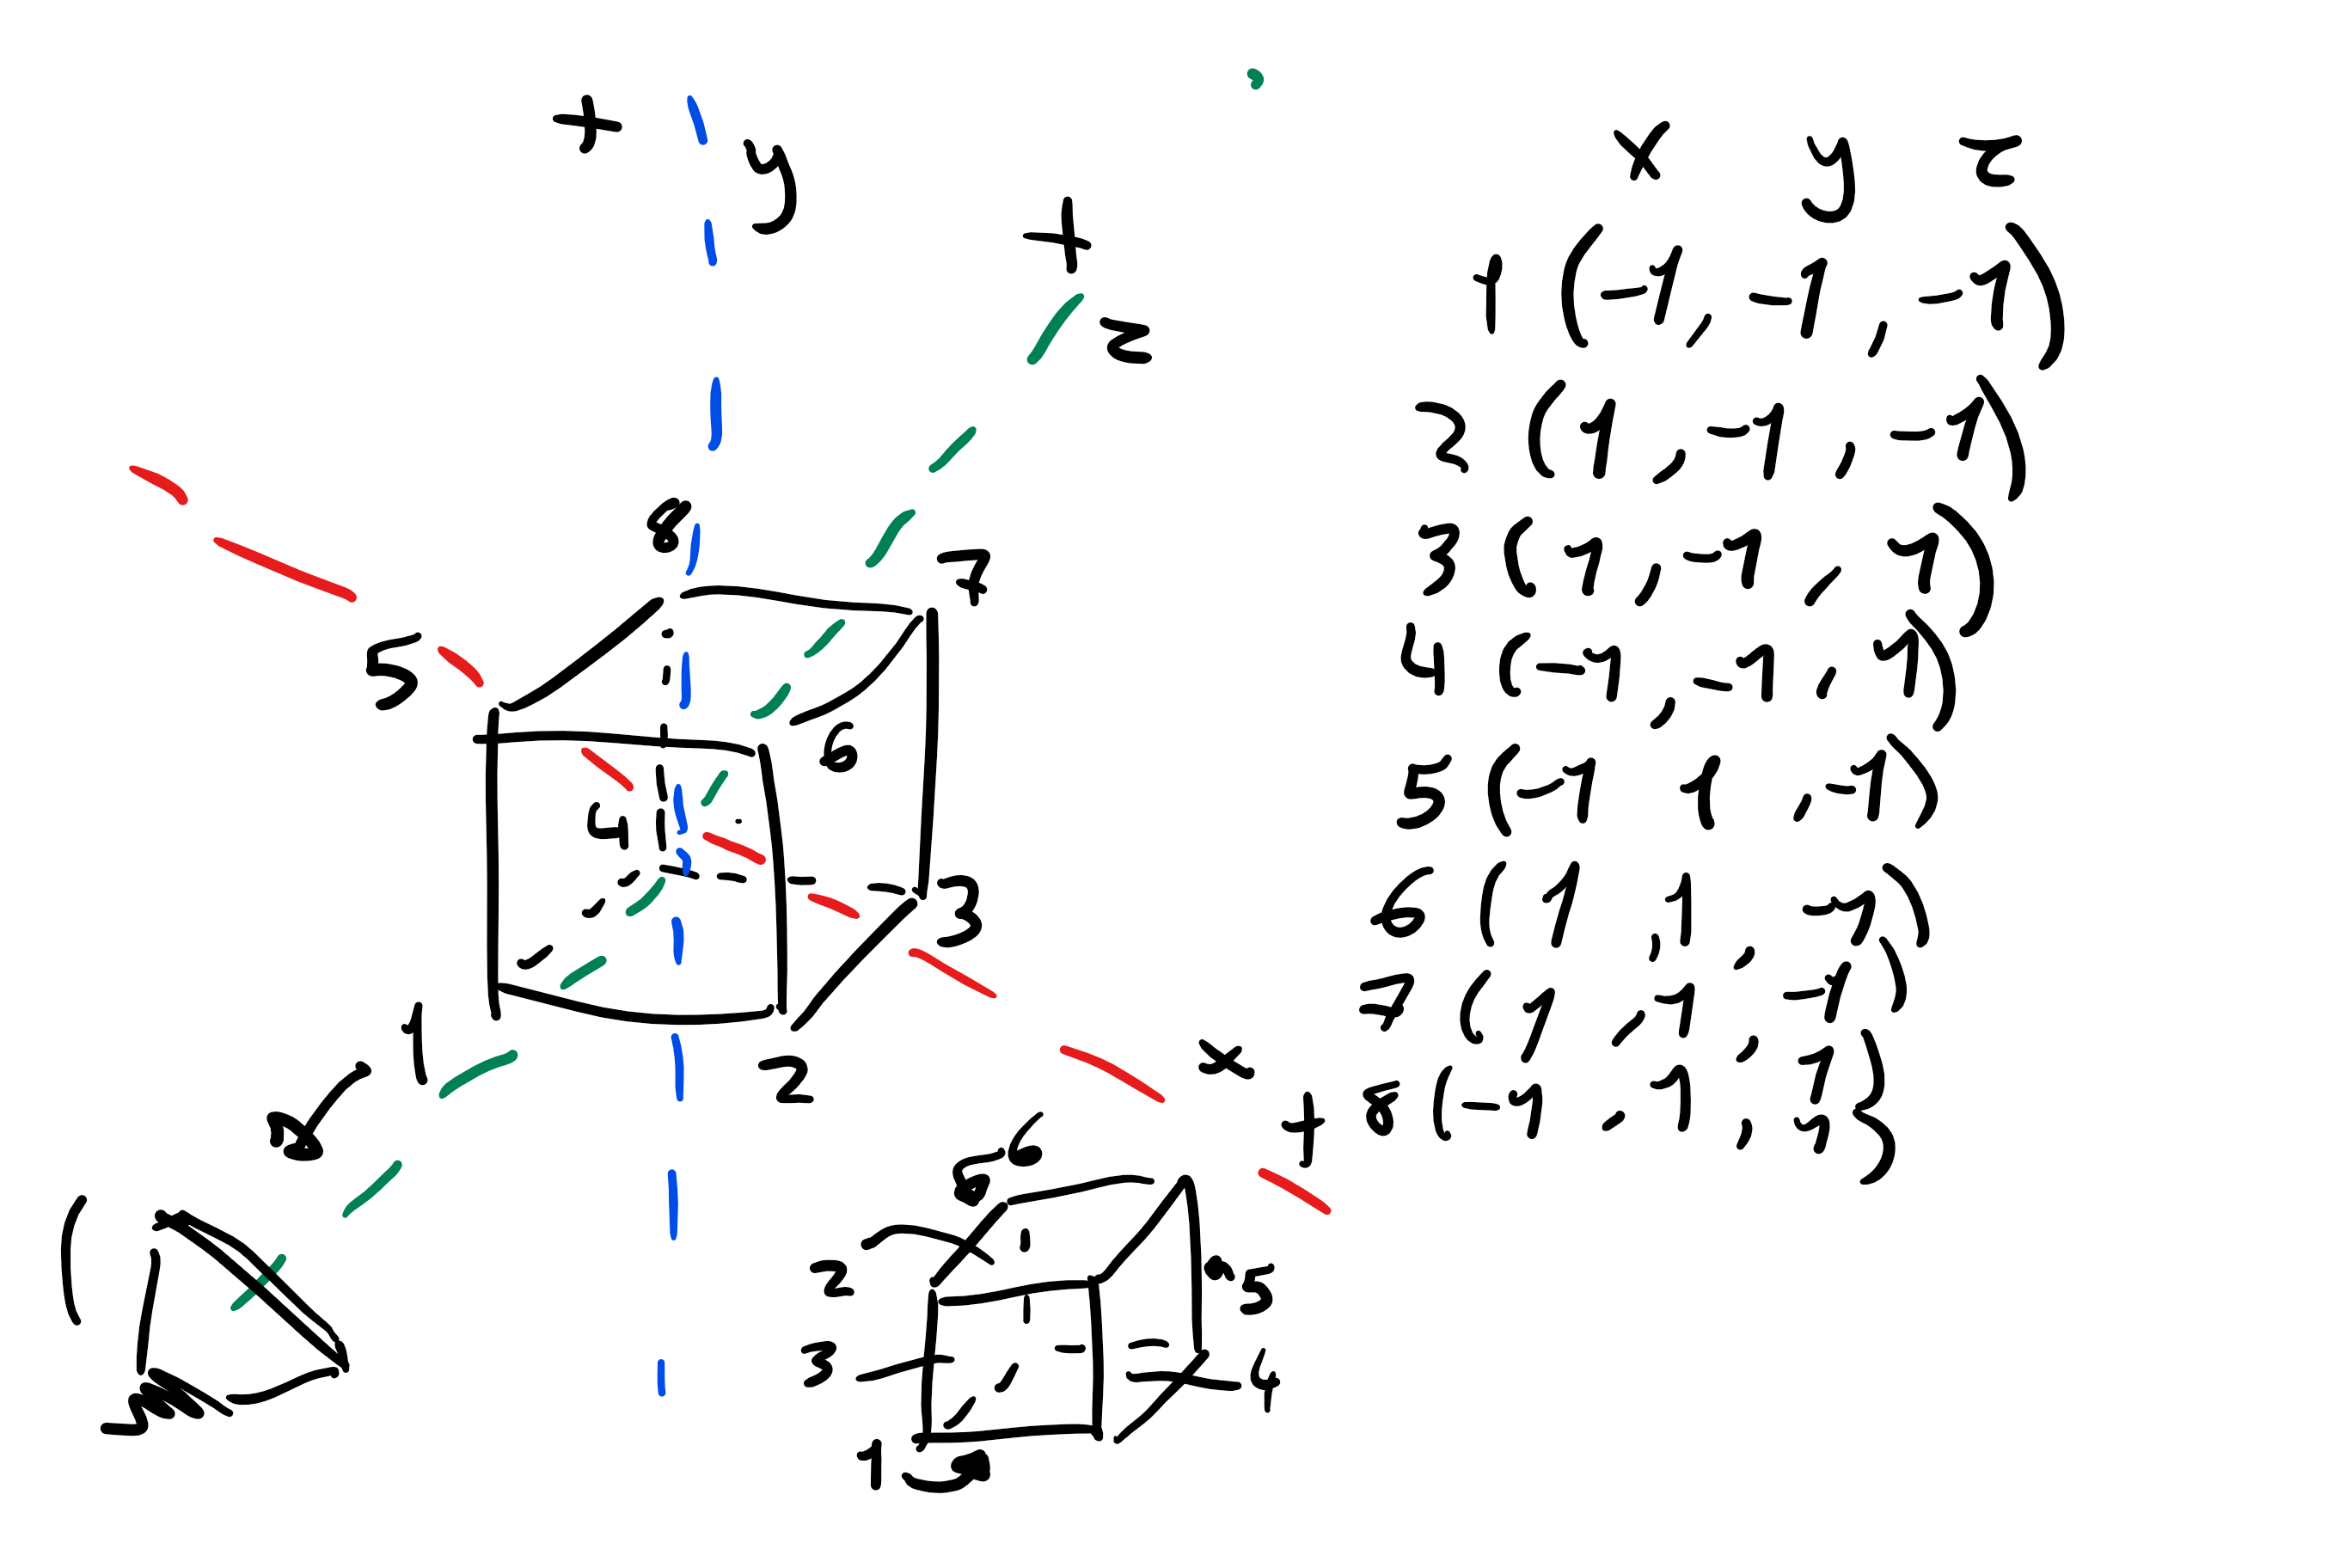 + y
+ z
8
7
5
6
4
3
1
2
x
+
6
2
5
3
4
1
x y z
1 (-1, -1, -1)
2 (1, -1, -1)
3 (1, -1, 1)
4 (-1, -1, 1)
5 (-1 1, -1)
6 (1 ,1, -1)
7 (1 ,1 -1)
, 1)
8 (-1 ,1 , 1)